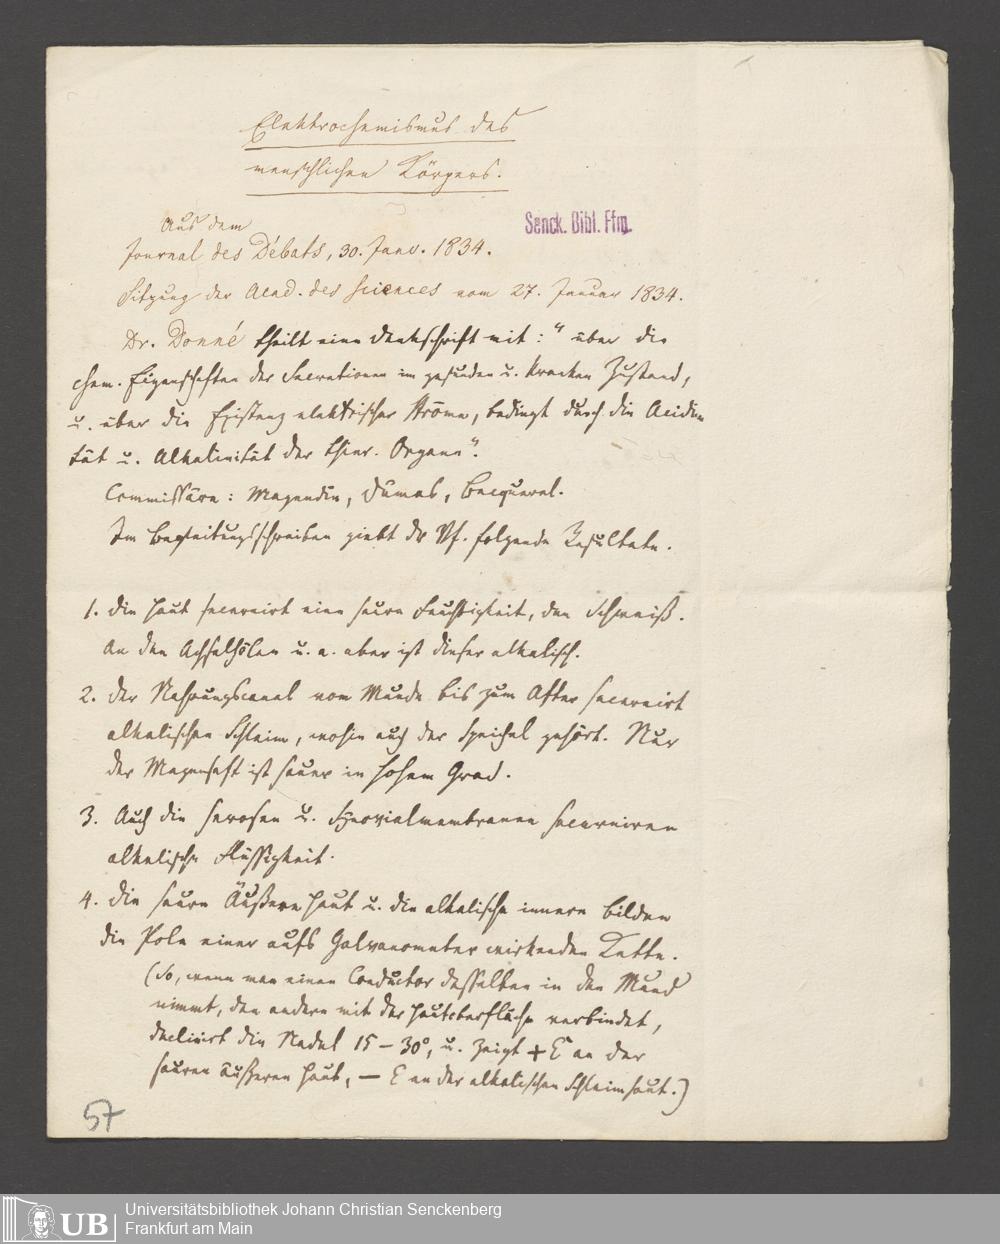 Elektrochemismus des
menschlichen Körpers.
Aus dem
Journal des Débats, 30. Janv. 1834.
Senck. Bibl. Ffm.
Sitzung der Acad. des sciences vom 27. Januar 1834.
Dr. Donné theilt eine Denkschrift mit: "über die
chem. Eigenschaften der Secretionen im gesunden u. kranken Zustand,
u. über die Existenz elektrischer Ströme, bedingt durch die Acidi-
tät u. Alkalinität der thier. Organe".
Commissäre: Magendie, Dumas, Becquerel.
Im Begleitungsschreiben giebt der Vf. folgende Resultate.
1. Die Haut secernirt eine saure Feuchtigkeit, den Schweiß.
An den Achselhölen u. a. aber ist dieser alkalisch.
2. Der Nahrungscanal vom Munde bis zum After secernirt
alkalischen Schleim, wohin auch der Speichel gehört. Nur
der Magensaft ist sauer in hohem Grad.
3. Auch die serosen u. Synovialmembranen secerniren
alkalische Flüssigkeit.
4. Die saure äußere Haut u. die alkalische innere bilden
die Pole einer aufs Galvanometer wirkenden Kette.
(So, wenn man einen Conductor desselben in den Mund
nimmt, den andern mit der Hautoberfläche verbindet,
declinirt die Nadel 15 – 30°, u. zeigt + E an der
sauren äußeren Haut, – E an der alkalischen Schleimhaut.)
57
UB
Universitätsbibliothek Johann Christian Senckenberg
Frankfurt am Main